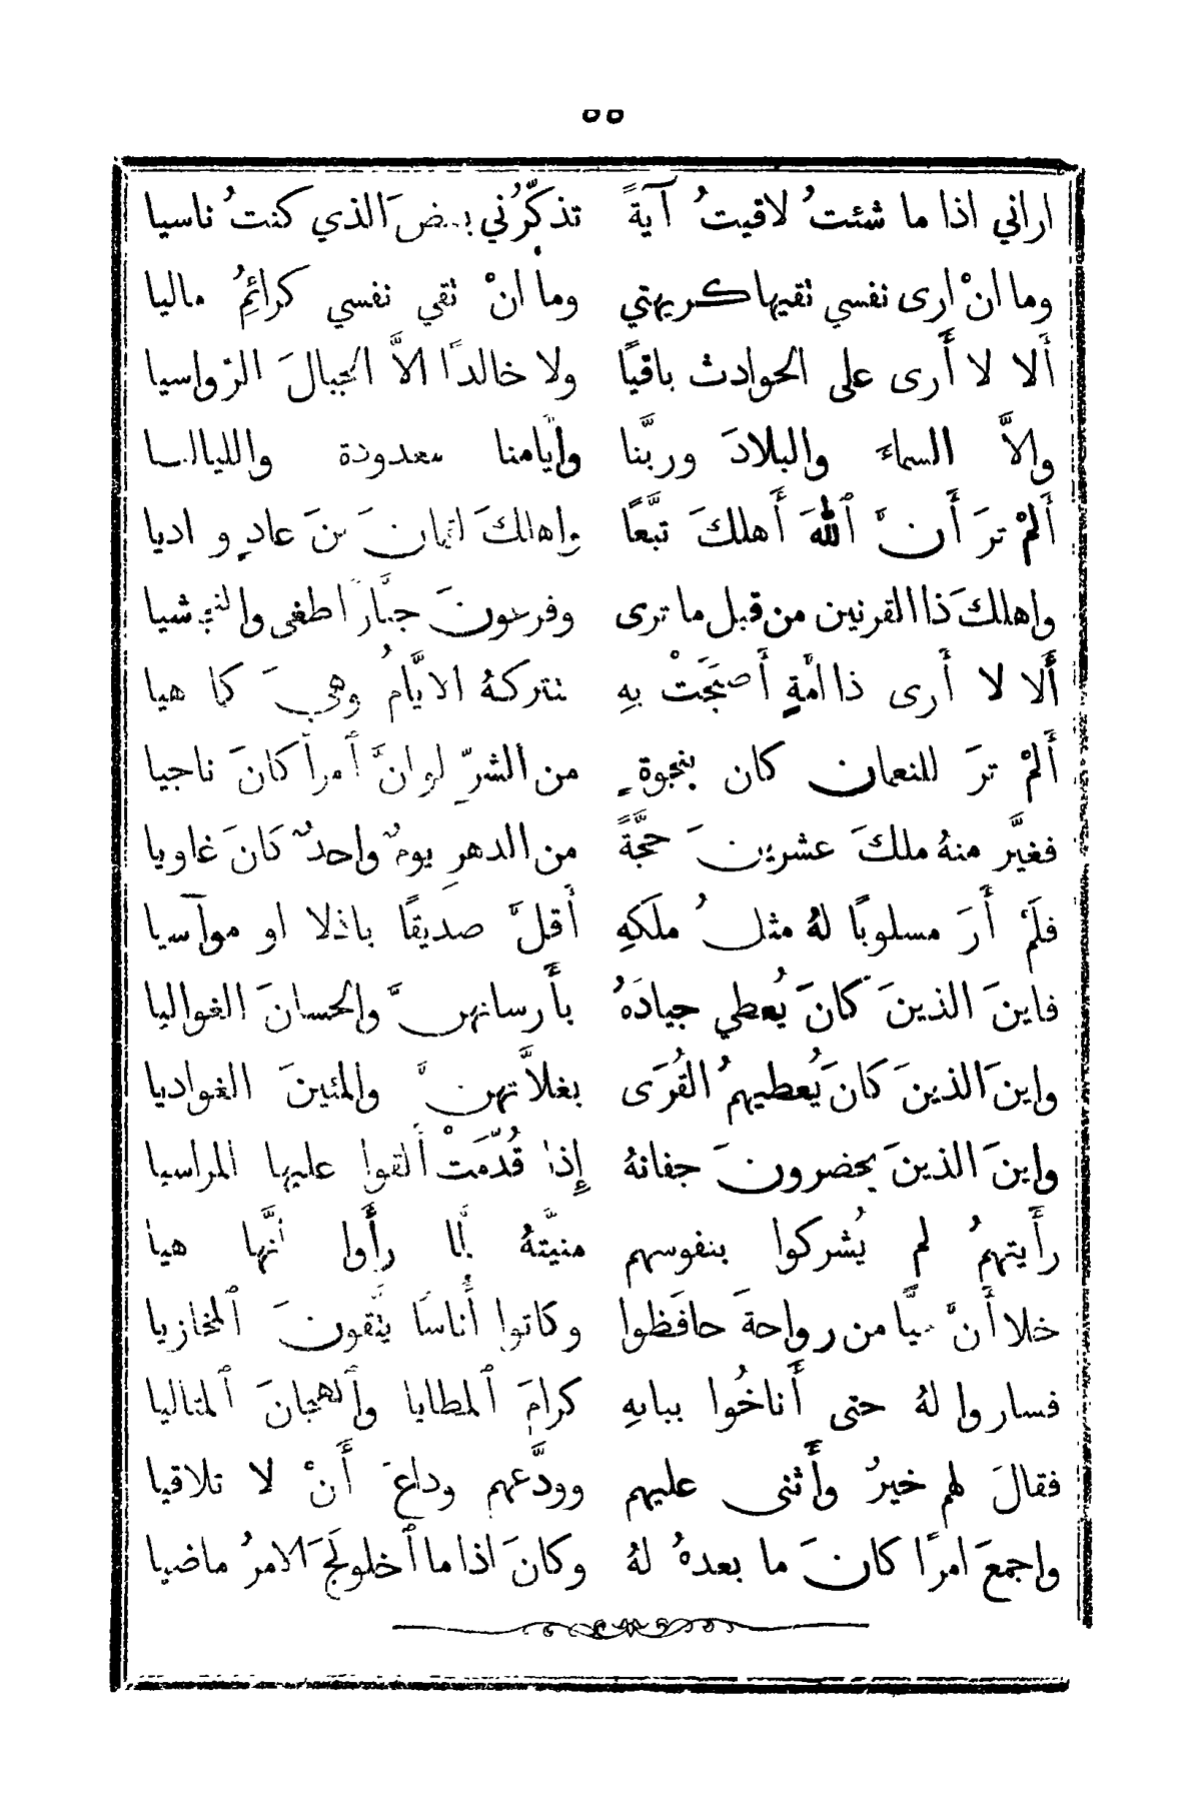 ٥٥
اراني اذا ما شئتُ لاقيتُ آيةً تذكّرُني ببعضَ الذي كنتُ ناسيا
وما انْ ارى نفسي تقيها كريهتي وما انْ تقي نفسي كرائمُ ماليا
ألا لا أَرى على الحوادث باقيًا ولا خالدًا الاَّ الجبالَ الرواسيا
والاَّ السماءَ والبلادَ وربَّنا وأيَّامنا معدودة والليالــا
أَلمْ ترَ أَنَّ ٱللهَ أَهلكَ تبَّعًا واهلكَ لقمانَ بنَ عادٍ و اديا
واهلكَ ذا القرنين من قبل ما ترى وفرعونَ جبَّارًا طغى والنجاشيا
أَلا لا أَرى ذا امَّةٍ أَصبَحَتْ بهِ تتركهُ الايَّامُ وهيَ كما هيا
أَلمْ ترَ للنعمان كان بنجوةٍ من الشرِّ لو انَّ ٱمرأً كانَ ناجيا
فغيَّر منهُ ملكَ عشرينَ حجَّةً من الدهرِ يومٌ واحدٌ كانَ غاويا
فلَمْ أَرَ مسلوبًا لهُ مثلُ ملكهِ أَقلَّ صديقًا باذلا او موآسيا
فاينَ الذينَ كانَ يُعطي جيادَهُ بأَرسانهنَّ والحسانَ الغواليا
واينَ الذينَ كانَ يُعطيهمُ القُرَى بغلاَّتهنَّ والمئينَ الغواديا
واينَ الذينَ يحضرونَ جفانهُ إِذا قُدّمَتْ أَلقوا عليها المراسيا
رأَيتهمُ لم يُشركوا بنفوسهم منيَّتهُ لمَّا رأَوا أنَّها هيا
خلا أَنَّ حيًّا من رواحةَ حافَظوا وكانوا أُناسًا يتَّقونَ ٱلمخازيا
فساروا لهُ حتى أَناخُوا ببابهِ كرامَ ٱلمطايا وٱلهجانَ ٱلمتاليا
فقالَ لهم خيرُ وأَثنى عليهم وودَّعهم وداعَ أَنْ لا تلاقيا
واجمعَ امرًا كانَ ما بعدهُ لهُ وكانَ اذا ما ٱخلولَجَ الامرُ ماضيا